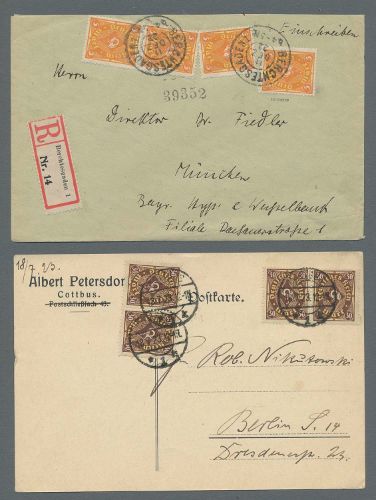 Einschreiben
BERCHTESGADEN
BERCHTESGADEN
39352
Herrn
Direktor Dr. Fiedler
München
Bayr. Hyp. & Wechselbank
Filiale
R
Berchtesgaden 1
Nr. 14
18/7 23.
Albert Petersdor
Cottbus.
Postschließfach 43.
Postkarte.
Rob. Nikutowski
Berlin S. 14
Dresdenerstr.